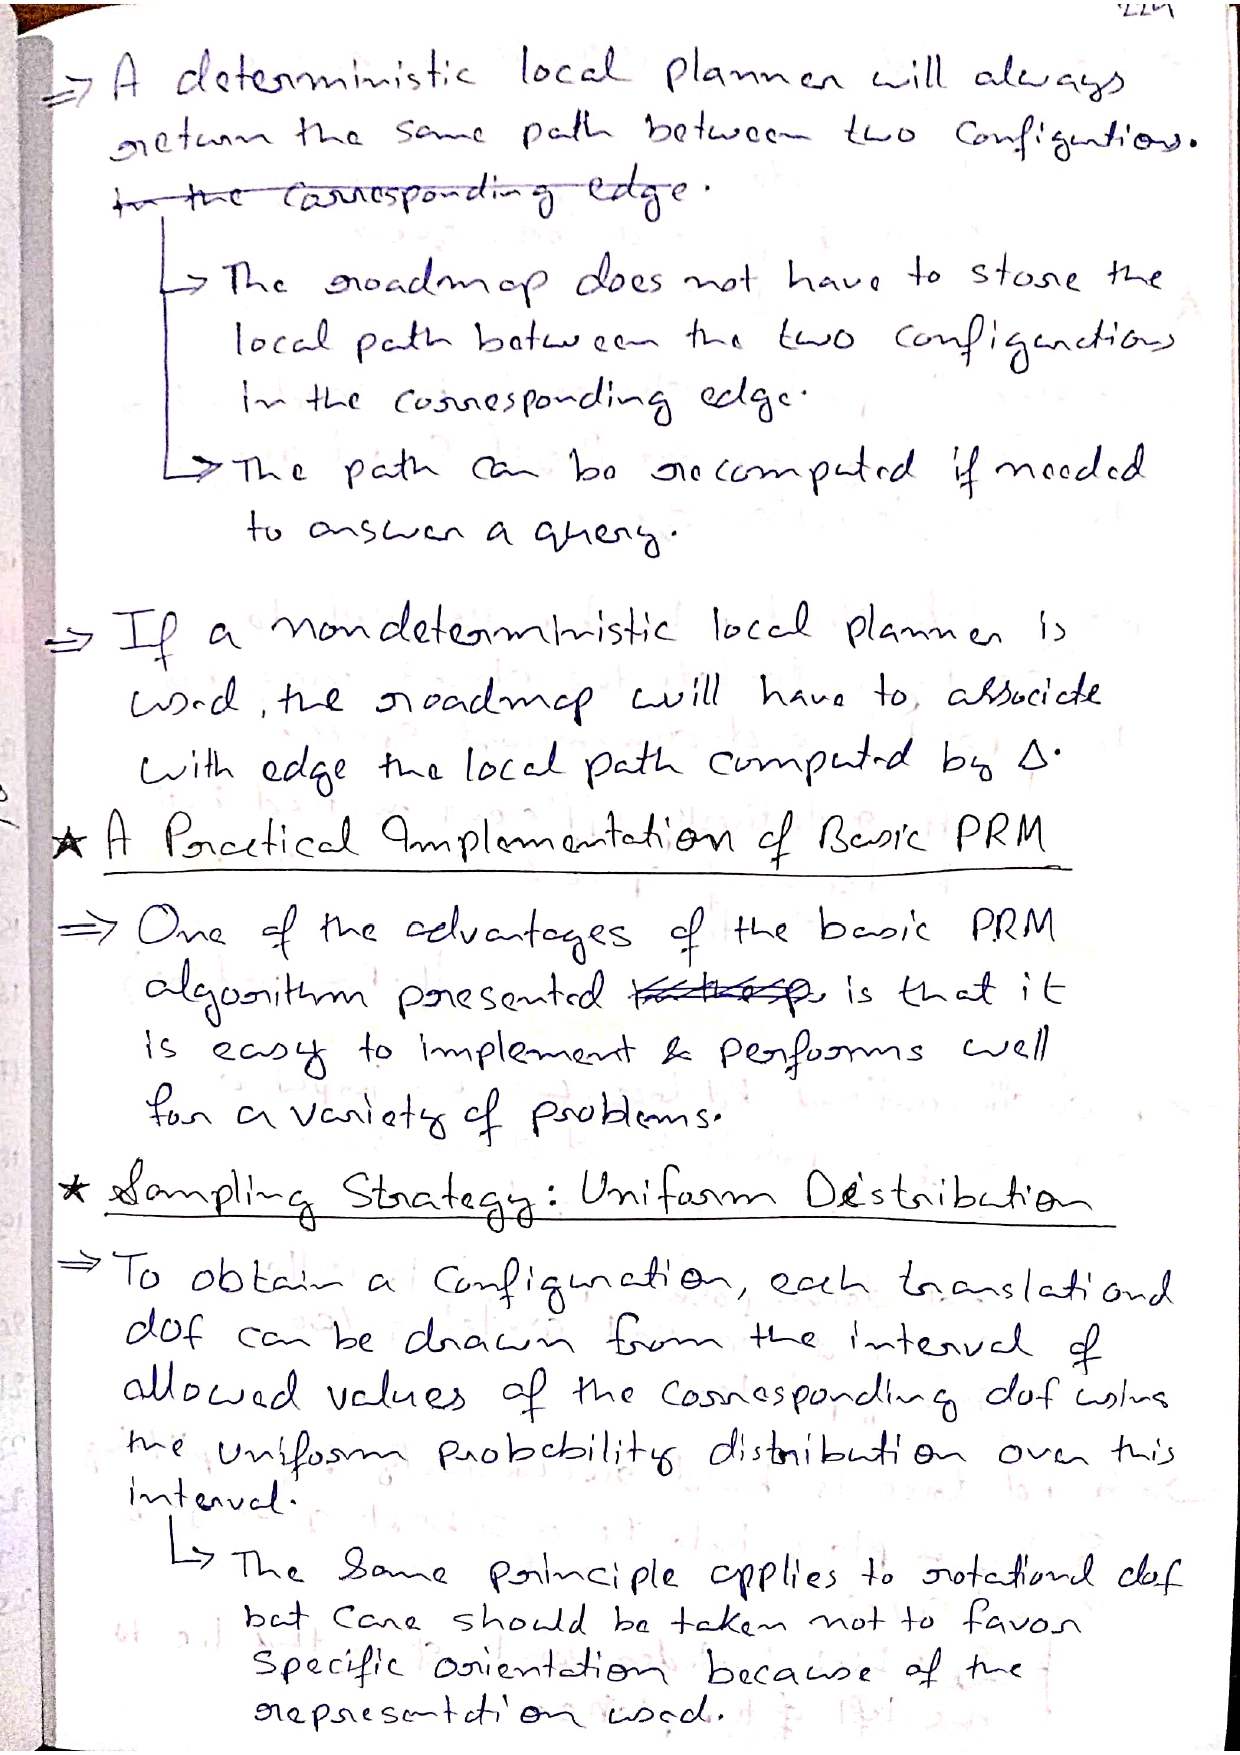 ⇒ A deterministic local planner will always
return the same path between two configurations.
in the corresponding edge.
↳ The roadmap does not have to store the
local path between the two configurations
in the corresponding edge.
↳ The path can be recomputed if needed
to answer a query.
⇒ If a nondeterministic local planner is
used, the roadmap will have to associate
with edge the local path computed by Δ.
★ A Practical Implementation of Basic PRM
⇒ One of the advantages of the basic PRM
algorithm presented is that it
is easy to implement & performs well
for a variety of problems.
★ Sampling Strategy: Uniform Distribution
⇒ To obtain a configuration, each translational
dof can be drawn from the interval of
allowed values of the corresponding dof using
the uniform probability distribution over this
interval.
↳ The same principle applies to rotational dof
but care should be taken not to favor
specific orientation because of the
representation used.